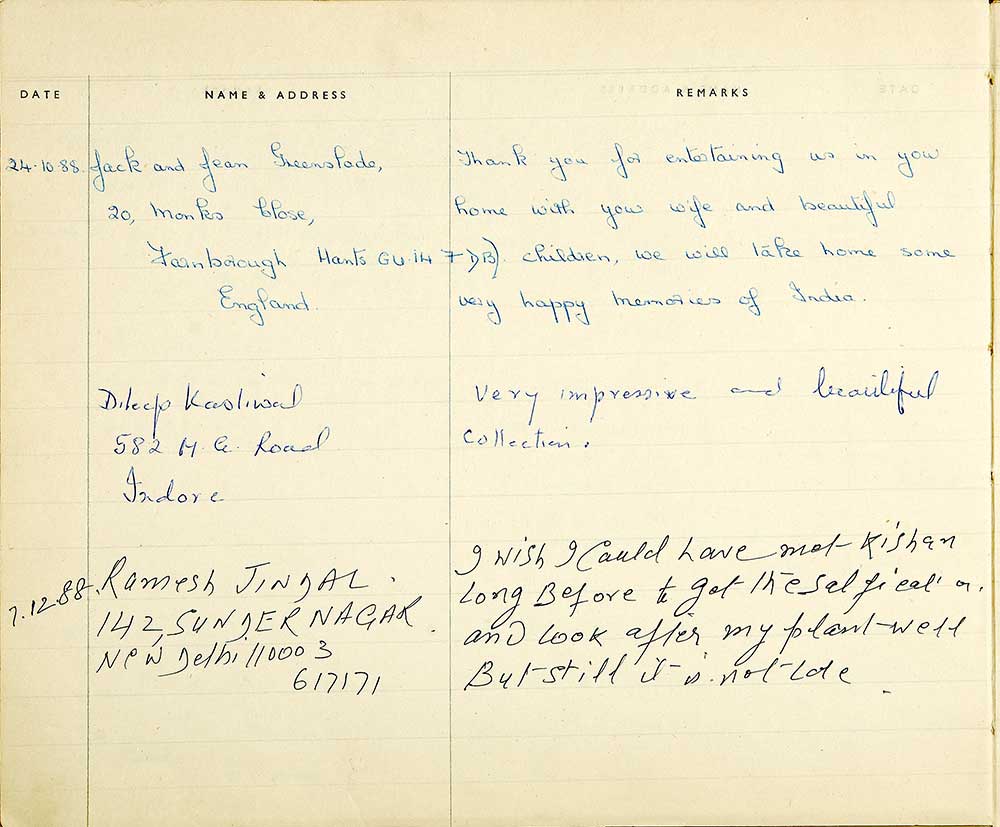 DATE NAME & ADDRESS REMARKS
24.10.88. Jack and Jean Greenslade,
20, Monks Close,
Farnborough Hants GU.14 7DB).
England.
Thank you for entertaining us in you
home with you wife and beautiful
children, we will take home some
very happy memories of India.
Dileep Kasliwal
582 M. G. Road
Indore
Very impressive and beautiful
collection.
7.12.88. Ramesh JINDAL.
142, SUNDER NAGAR.
New Delhi 110003
617171
I wish I Could have met Kishan
long Before to get the
and look after my plant well
But still it is not late.